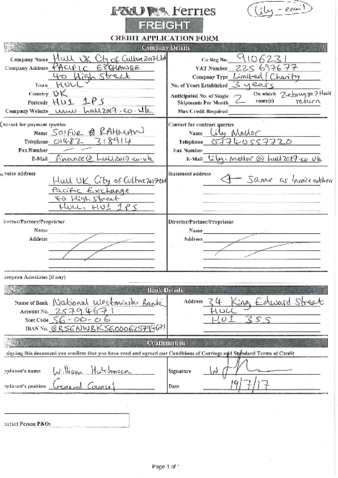 P&O Ferries
Lily - email
FREIGHT
CREDIT APPLICATION FORM
Company Details
Company Name Hull UK City of Culture 2017 Ltd
Co Reg No. 9106231
Company Address PACIFIC EXCHANGE
VAT Number 225 697677
40 High Street
Company Type Limited / Charity
Town HULL
No. of Years Established 3 years
Country UK
Anticipated No. of Single Shipments Per Month 2
On which route(s) Zeebrugge > Hull return
Postcode HU1 1PS
Company Website www.hull2017.co.uk
Max Credit Required
Contact for payment queries
Contact for contract queries
Name RAHMAN
Name Lily Mellor
Telephone 01482 318914
Telephone 07740557720
Fax Number
Fax Number
E-Mail finance@hull2017.co.uk
E-Mail lily.mellor@hull2017.co.uk
nvoice address
Statement address
Hull UK City of Culture 2017 Ltd
Same as invoice address
Pacific Exchange
40 High Street
HULL, HU1 1PS
irector/Partner/Proprietor
Director/Partner/Proprietor
Name
Name
Address
Address
ompany Associates (if any)
Bank Details
Name of Bank National Westminster Bank
Address 34 King Edward Street
Account No. 25794671
HULL
Sort Code 56-00-06
HU1 3SS
IBAN No.
Confirmation
signing this document you confirm that you have read and agreed our Conditions of Carriage and Standard Terms of Credit
pplicant's name William Hutchinson
Signature
pplicant's position General Counsel
Date 19/7/17
ontact Person P&O:
Page 1 of 1